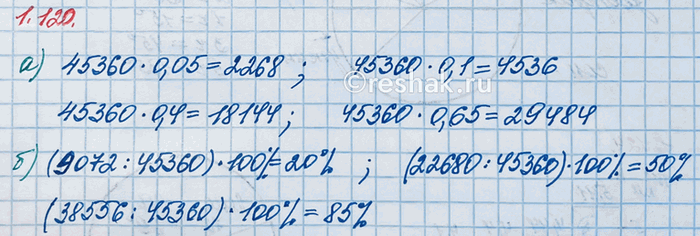 1.120.
а) 45360 · 0,05 = 2268 ; 45360 · 0,1 = 4536
reshak.ru
45360 · 0,4 = 18144 ; 45360 · 0,65 = 29484
б) (9072 : 45360) · 100% = 20% ; (22680 : 45360) · 100% = 50%
(38556 : 45360) · 100% = 85%